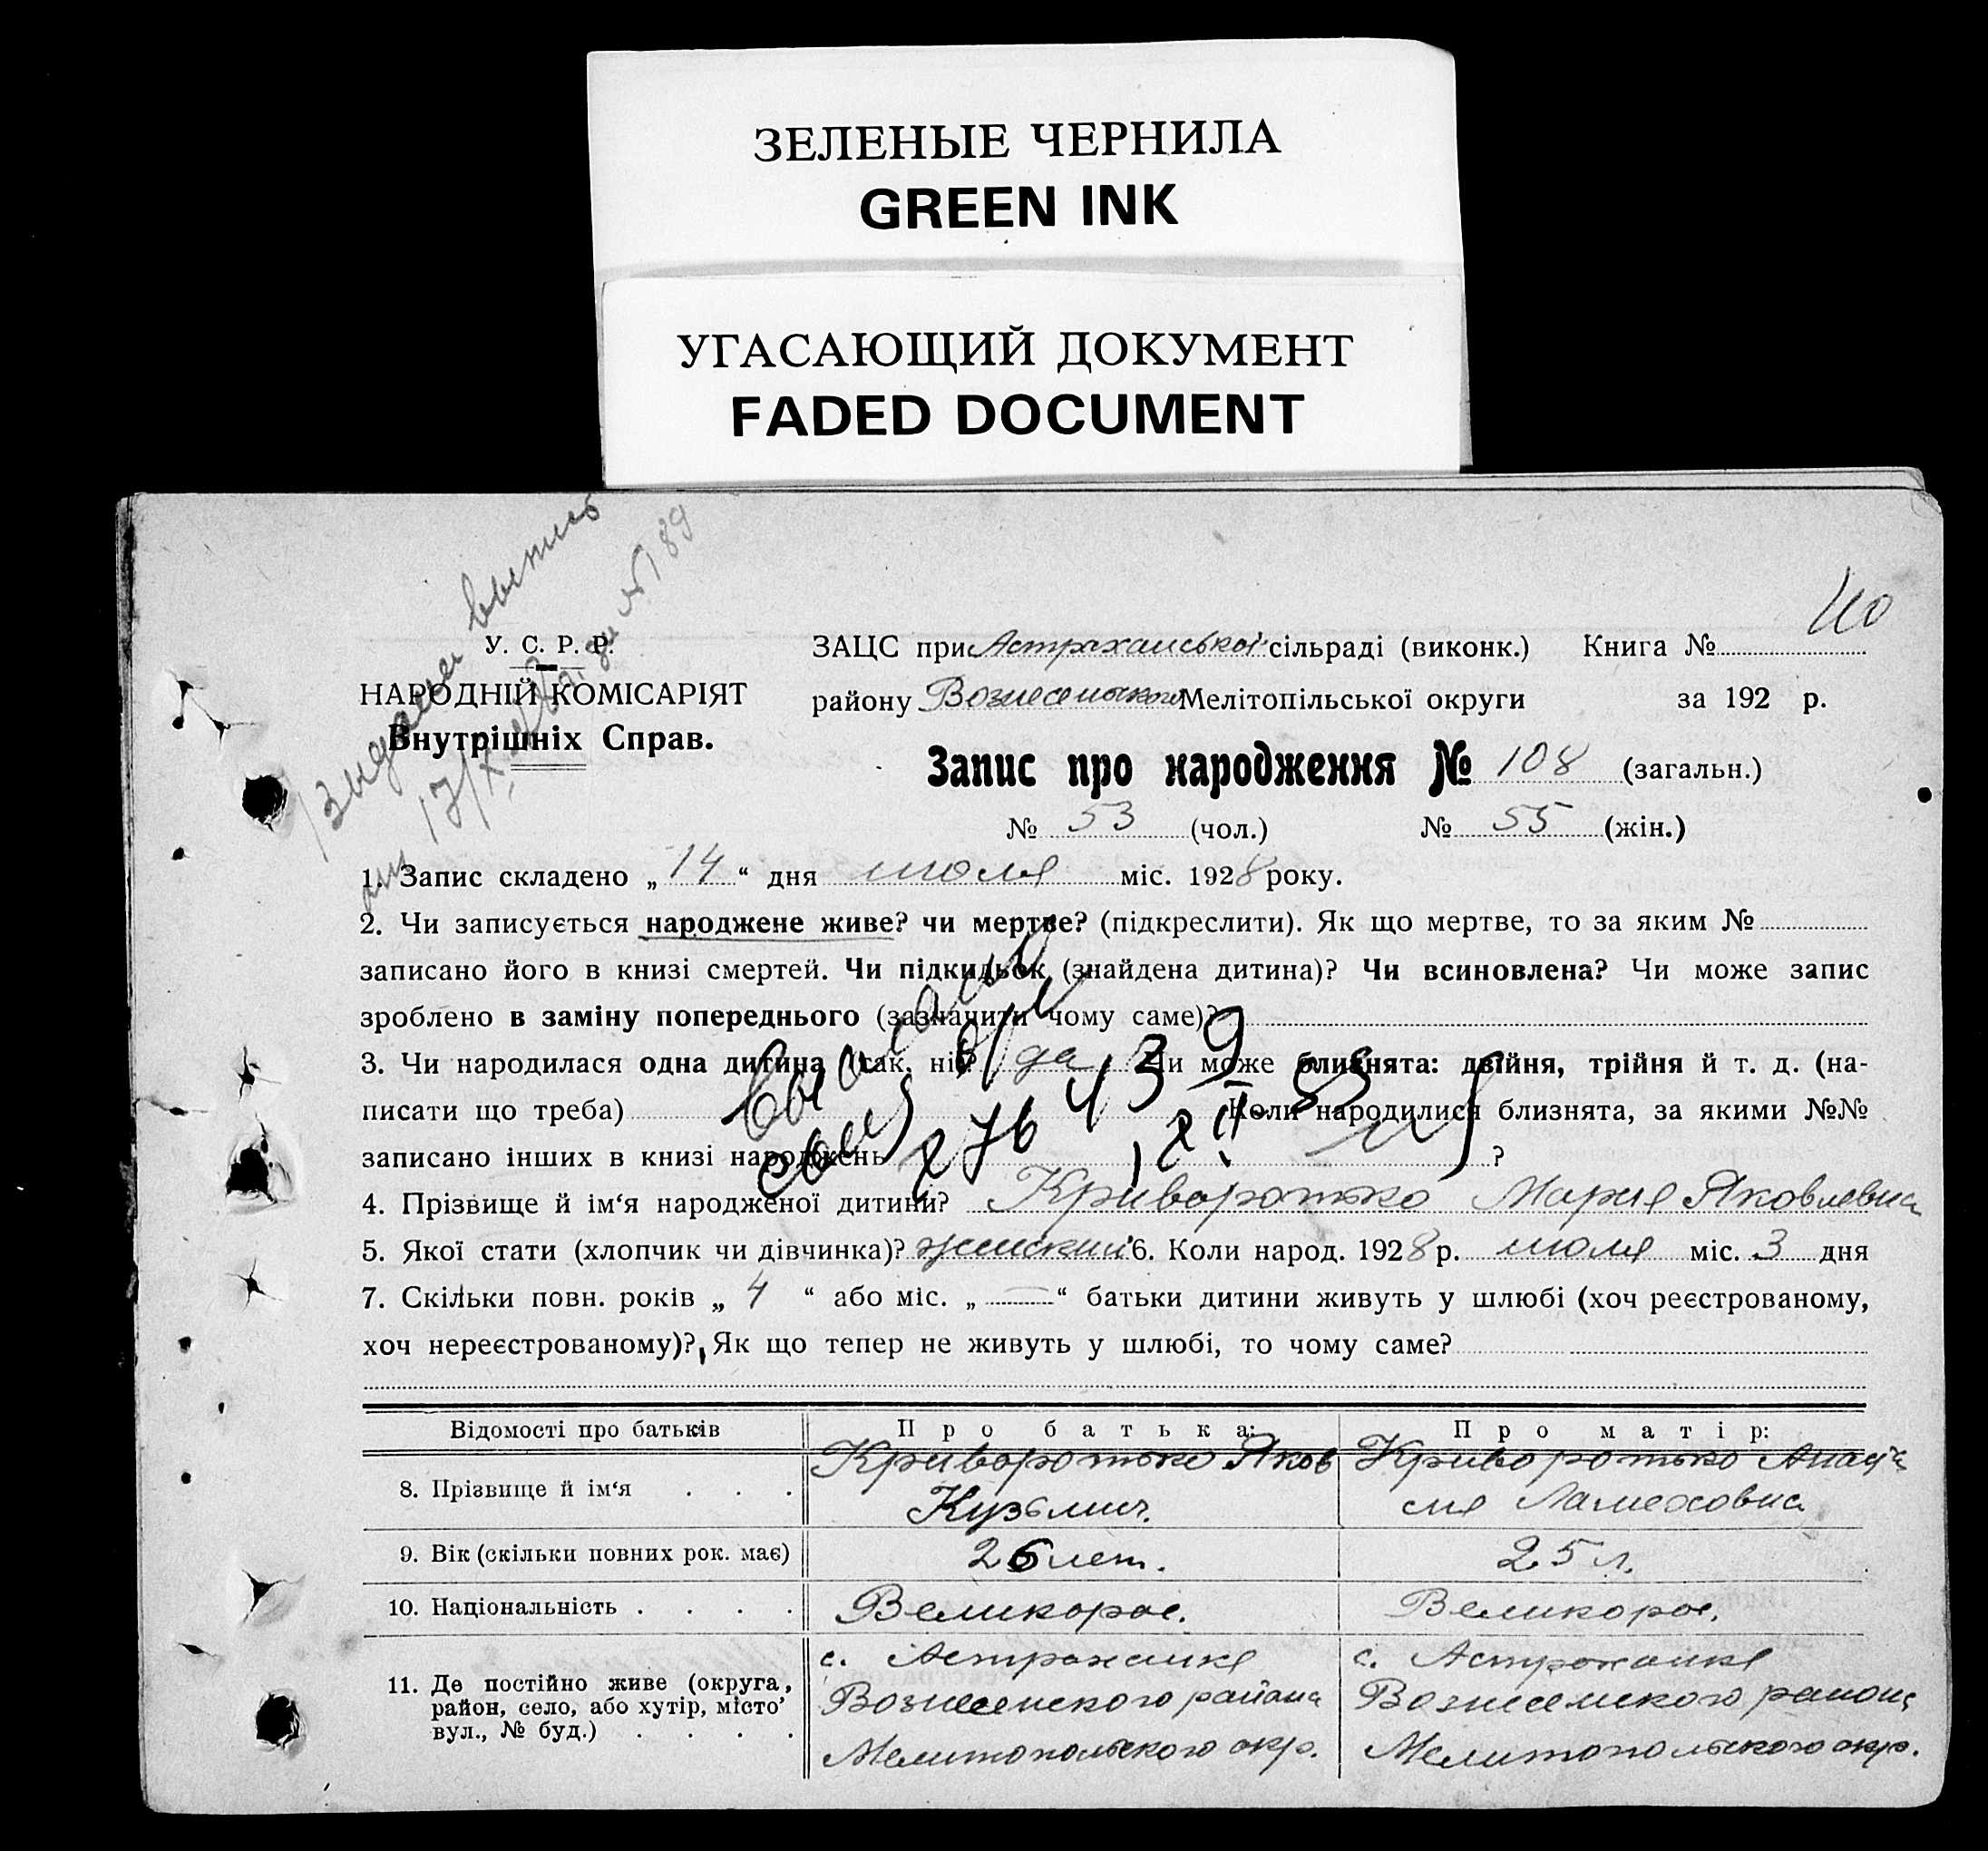 ЗЕЛЕНЫЕ ЧЕРНИЛА
GREEN INK
УГАСАЮЩИЙ ДОКУМЕНТ
FADED DOCUMENT
У. С. Р. Р.
НАРОДНІЙ КОМІСАРІЯТ
Внутрішніх Справ.
ЗАЦС при Астраханській сільраді (виконк.) Книга №
району Вознесенського Мелітопільської округи за 192 р.
Запис про народження № 108 (загальн.)
№ 53 (чол.) № 55 (жін.)
1. Запис складено „ 14 “ дня июля міс. 1928 року.
2. Чи записується народжене живе? чи мертве? (підкреслити). Як що мертве, то за яким №
записано його в книзі смертей. Чи підкидьок (знайдена дитина)? Чи всиновлена? Чи може запис
зроблено в заміну попереднього (зазначити чому саме)?
3. Чи народилася одна дитина (так, ні)? да Чи може близнята: двійня, трійня й т. д. (на-
писати що треба) Коли народилися близнята, за якими №№
записано інших в книзі народжень ?
4. Прізвище й ім‘я народженої дитини? Криворотько Мария Яковлевна
5. Якої стати (хлопчик чи дівчинка)? женский 6. Коли народ. 1928 р. июля міс. 3 дня
7. Скільки повн. років „ 4 “ або міс. „ — “ батьки дитини живуть у шлюбі (хоч реєстрованому,
хоч нереєстрованому)? Як що тепер не живуть у шлюбі, то чому саме?
Відомості про батьків Про батька: Про матір:
8. Прізвище й ім‘я . . . Криворотько Яков Криворотько Анаста
Кузьмич. сия Ламеховна
9. Вік (скільки повних рок. має) 26 лет. 25 л.
10. Національність . . . . Великорос. Великорос.
11. Де постійно живе (округа, с. Астраханке с. Астраханке
район, село, або хутір, місто Вознесенского района Вознесенского района
вул., № буд.) . . . . Мелитопольского окр. Мелитопольского окр.